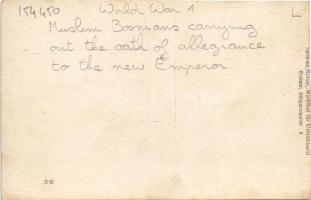 154450
World War 1
L
Muslim Bosnians carrying
out the oath of allegiance
to the new Emperor